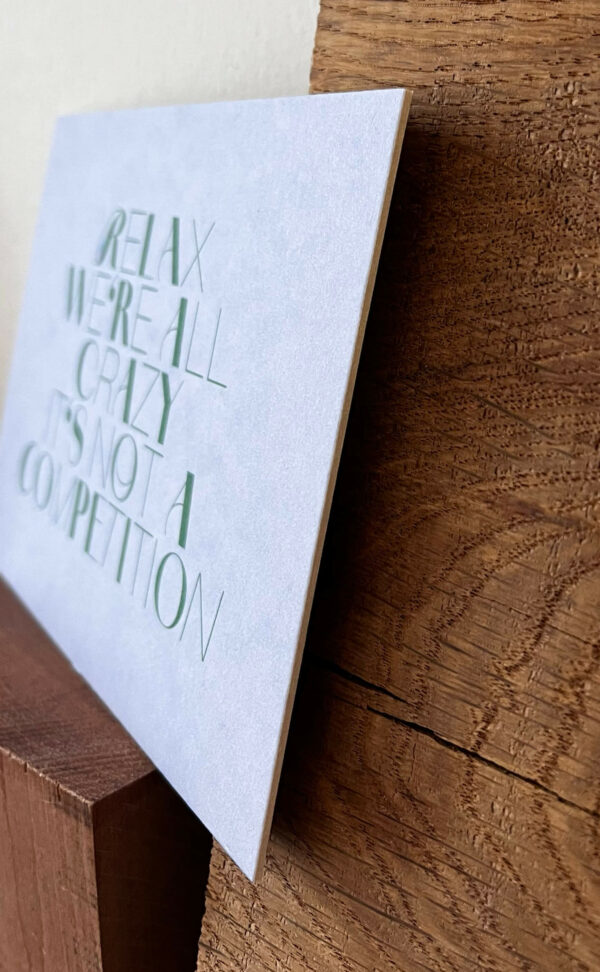 RELAX
WE'RE ALL
CRAZY
IT'S NOT A
COMPETITION